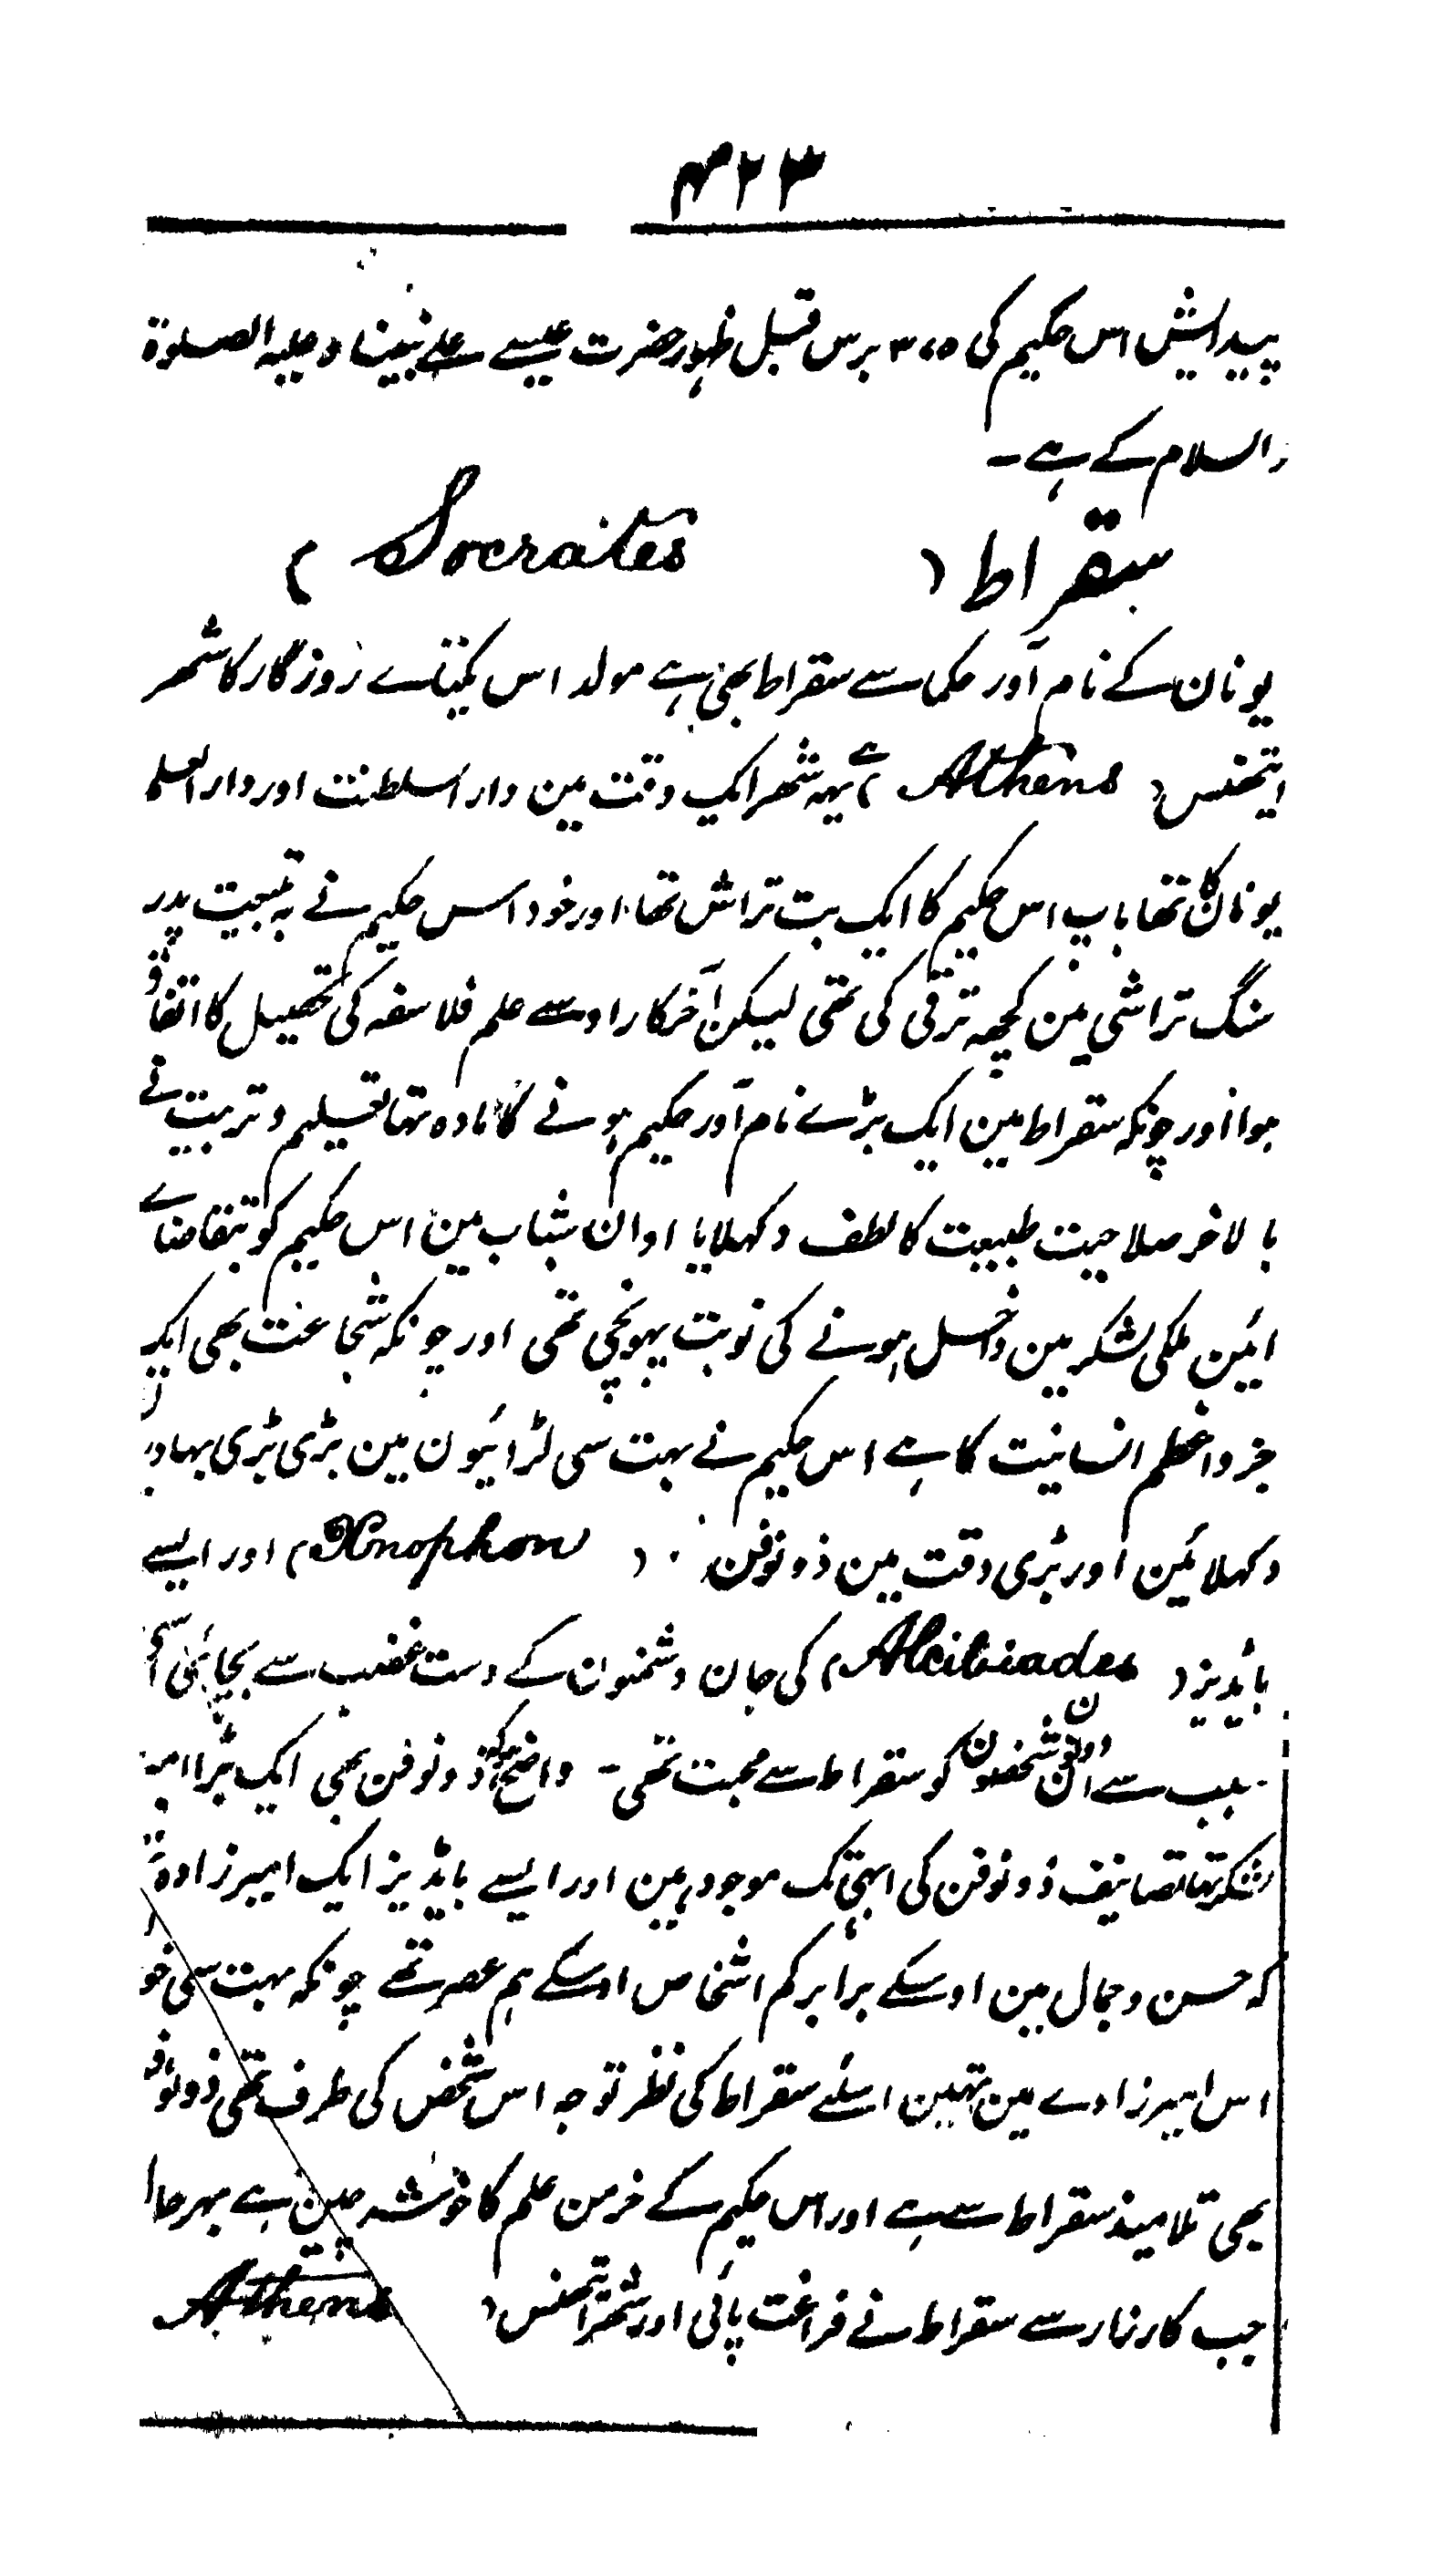 ۴۲۳
پیدایش اس حکیم کی ۳۷۵ برس قبل ظہور حضرت عیسے علے نبینا و علیہ الصلوۃ
والسلام کے ہے۔
سقراط ( Socrates )
یونان کے نام آور حکما سے سقراط بھی ہے مولد اس یکتاے روزگار کا شھر
ایتھنس ( Athens ) ہے یہہ شھر ایک وقت مین دار السلطنت اور دار العلما
یونان کا تھا باپ اس حکیم کا ایک بت تراش تھا اور خود اس حکیم نے بہ تبعیت پدر
سنگ تراشی مین کچھہ ترقی کی تھی لیکن آخر کار اوسے علم فلاسفہ کی تحصیل کا اتفاق
ہوا اور چونکہ سقراط مین ایک بڑے نام آور حکیم ہونے کا مادہ تھا تعلیم و تربیت نے
بالاخر صلاحیت طبیعت کا لطف دکھلایا اوان شباب مین اس حکیم کو بتقاضاے
ائین ملکی لشکر مین داخل ہونے کی نوبت پہونچی تھی اور چونکہ شجاعت بھی ایک
جزو اعظم انسانیت کا ہے اس حکیم نے بہت سی لڑائیون مین بڑی بڑی بہادری
دکھلائین اور بڑی دقت مین ذونوفن ( Xnophon ) اور ایسے
بائدیز ( Alcibiades ) کی جان دشمنون کے دست غضب سے بچائی اسی
سبب سے اون دونون شخصون کو سقراط سے محبت تھی ۔ واضح ہو کہ ذونوفن بھی ایک بڑا امیر
لشکر تھا تصانیف ذونوفن کی ابھی تک موجود ہین اور ایسے بائدیز ایک امیرزادہ تھا
کہ حسن و جمال مین اوسکے برابر کم اشخاص اوسکے ہم عصر تھے چونکہ بہت سی خو
اس امیرزادے مین تھین اسلئے سقراط کی نظر توجہ اس شخص کی طرف تھی ذونوفن
بھی تلامیذ سقراط سے ہے اور اس حکیم کے خرمن علم کا خوشہ چین ہے بہرحال
جب کارزار سے سقراط نے فراغت پائی اور شھر ایتھنس ( Athens